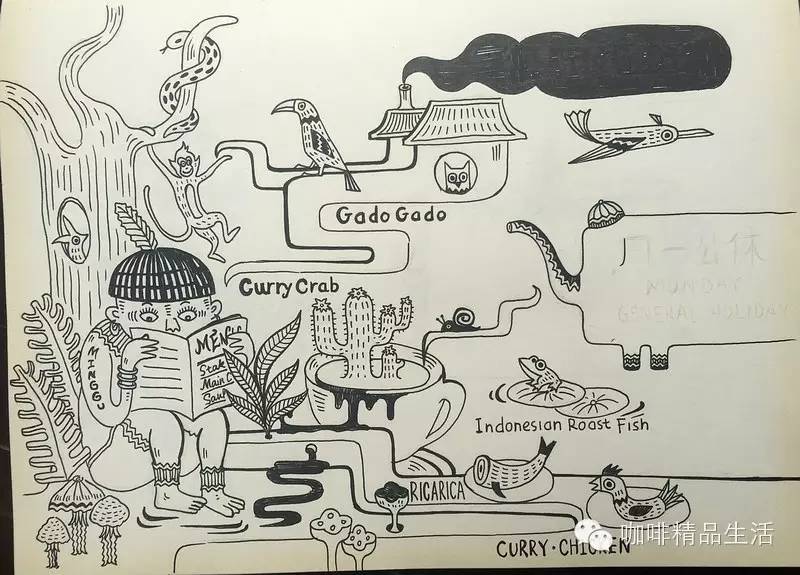 Gado Gado
一公休
MUNDAY
GENERAL HOLIDAY
Curry Crab
MINGGU
MENU
Main
Indonesian Roast Fish
RICARICA
CURRY·CHICKEN
咖啡精品生活